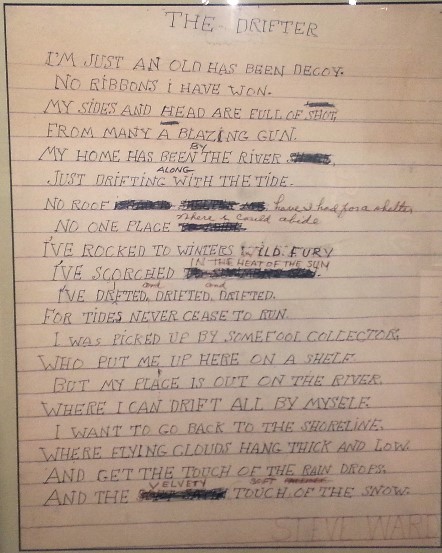 THE DRIFTER
I'M JUST AN OLD HAS BEEN DECOY.
NO RIBBONS I HAVE WON.
MY SIDES AND HEAD ARE FULL OF SHOT,
FROM MANY A BLAZING GUN.
MY HOME HAS BEEN BY THE RIVER
JUST DRIFTING ALONG WITH THE TIDE.
NO ROOF have I had for a shelter
NO ONE PLACE where I could abide
I'VE ROCKED TO WINTERS WILD FURY
I'VE SCORCHED IN THE HEAT OF THE SUN
I'VE DRIFTED, and DRIFTED, and DRIFTED.
FOR TIDES NEVER CEASE TO RUN.
I WAS PICKED UP BY SOMEFOOL COLLECTOR,
WHO PUT ME UP HERE ON A SHELF.
BUT MY PLACE IS OUT ON THE RIVER,
WHERE I CAN DRIFT ALL BY MYSELF.
I WANT TO GO BACK TO THE SHORELINE,
WHERE FLYING CLOUDS HANG THICK AND LOW.
AND GET THE TOUCH OF THE RAIN DROPS,
AND THE VELVETY SOFT TOUCH OF THE SNOW.
STEVE WARD